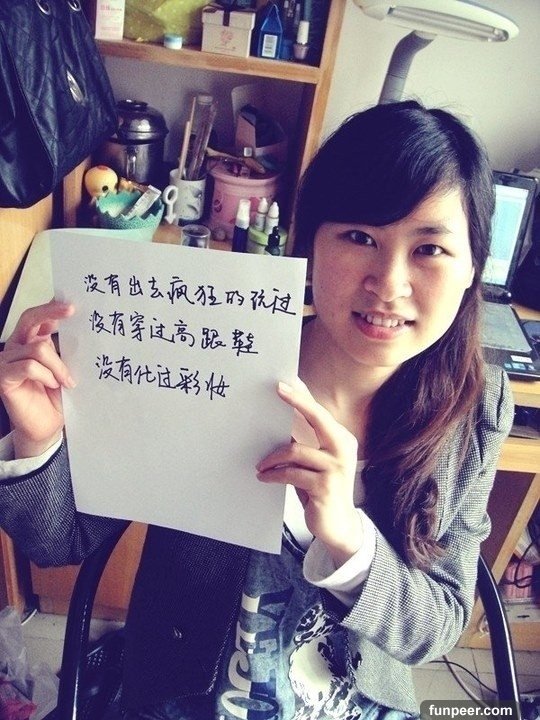 没有出去疯狂的玩过
没有穿过高跟鞋
没有化过彩妆
funpeer.com